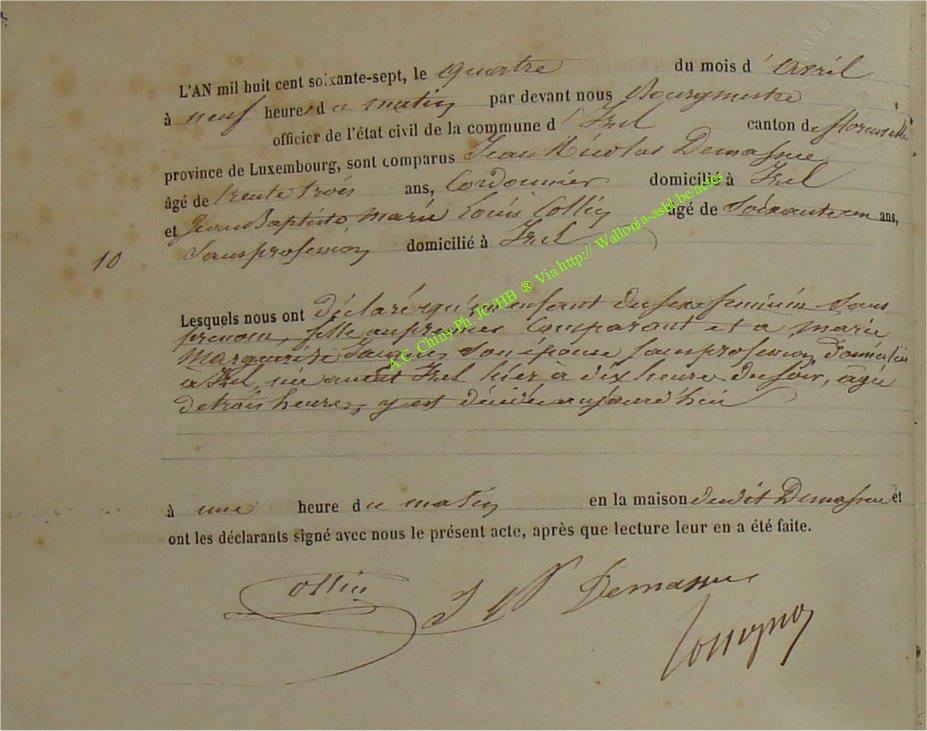 L'AN mil huit cent soixante-sept, le quatre du mois d' avril
à neuf heures du matin par devant nous Bourgmestre
officier de l'état civil de la commune d' Izel canton de florenville
province de Luxembourg, sont comparus Jean Nicolas Demasure
âgé de trente trois ans, Cordonnier domicilié à Izel
et Jean Baptiste marie Louis Collin âgé de Soixante un ans,
10 Sans profession domicilié à Izel
Lesquels nous ont déclaré qu'un enfant du sexe feminin Sans
prenom, fille au premier Comparant et a marie
Marguerite son épouse sans profession, Domiciliée
a Izel, née audit Izel hier à dix heures du soir, âgée
de trois heures, y est décédée aujourd'hui
à une heure du matin en la maison dudit Demasure et
ont les déclarants signé avec nous le présent acte, après que lecture leur en a été faite.
Collin J N Demasure
A.C. Chiny Ph JC/HB ® Via http:// Wallonia-asbl.be/actes